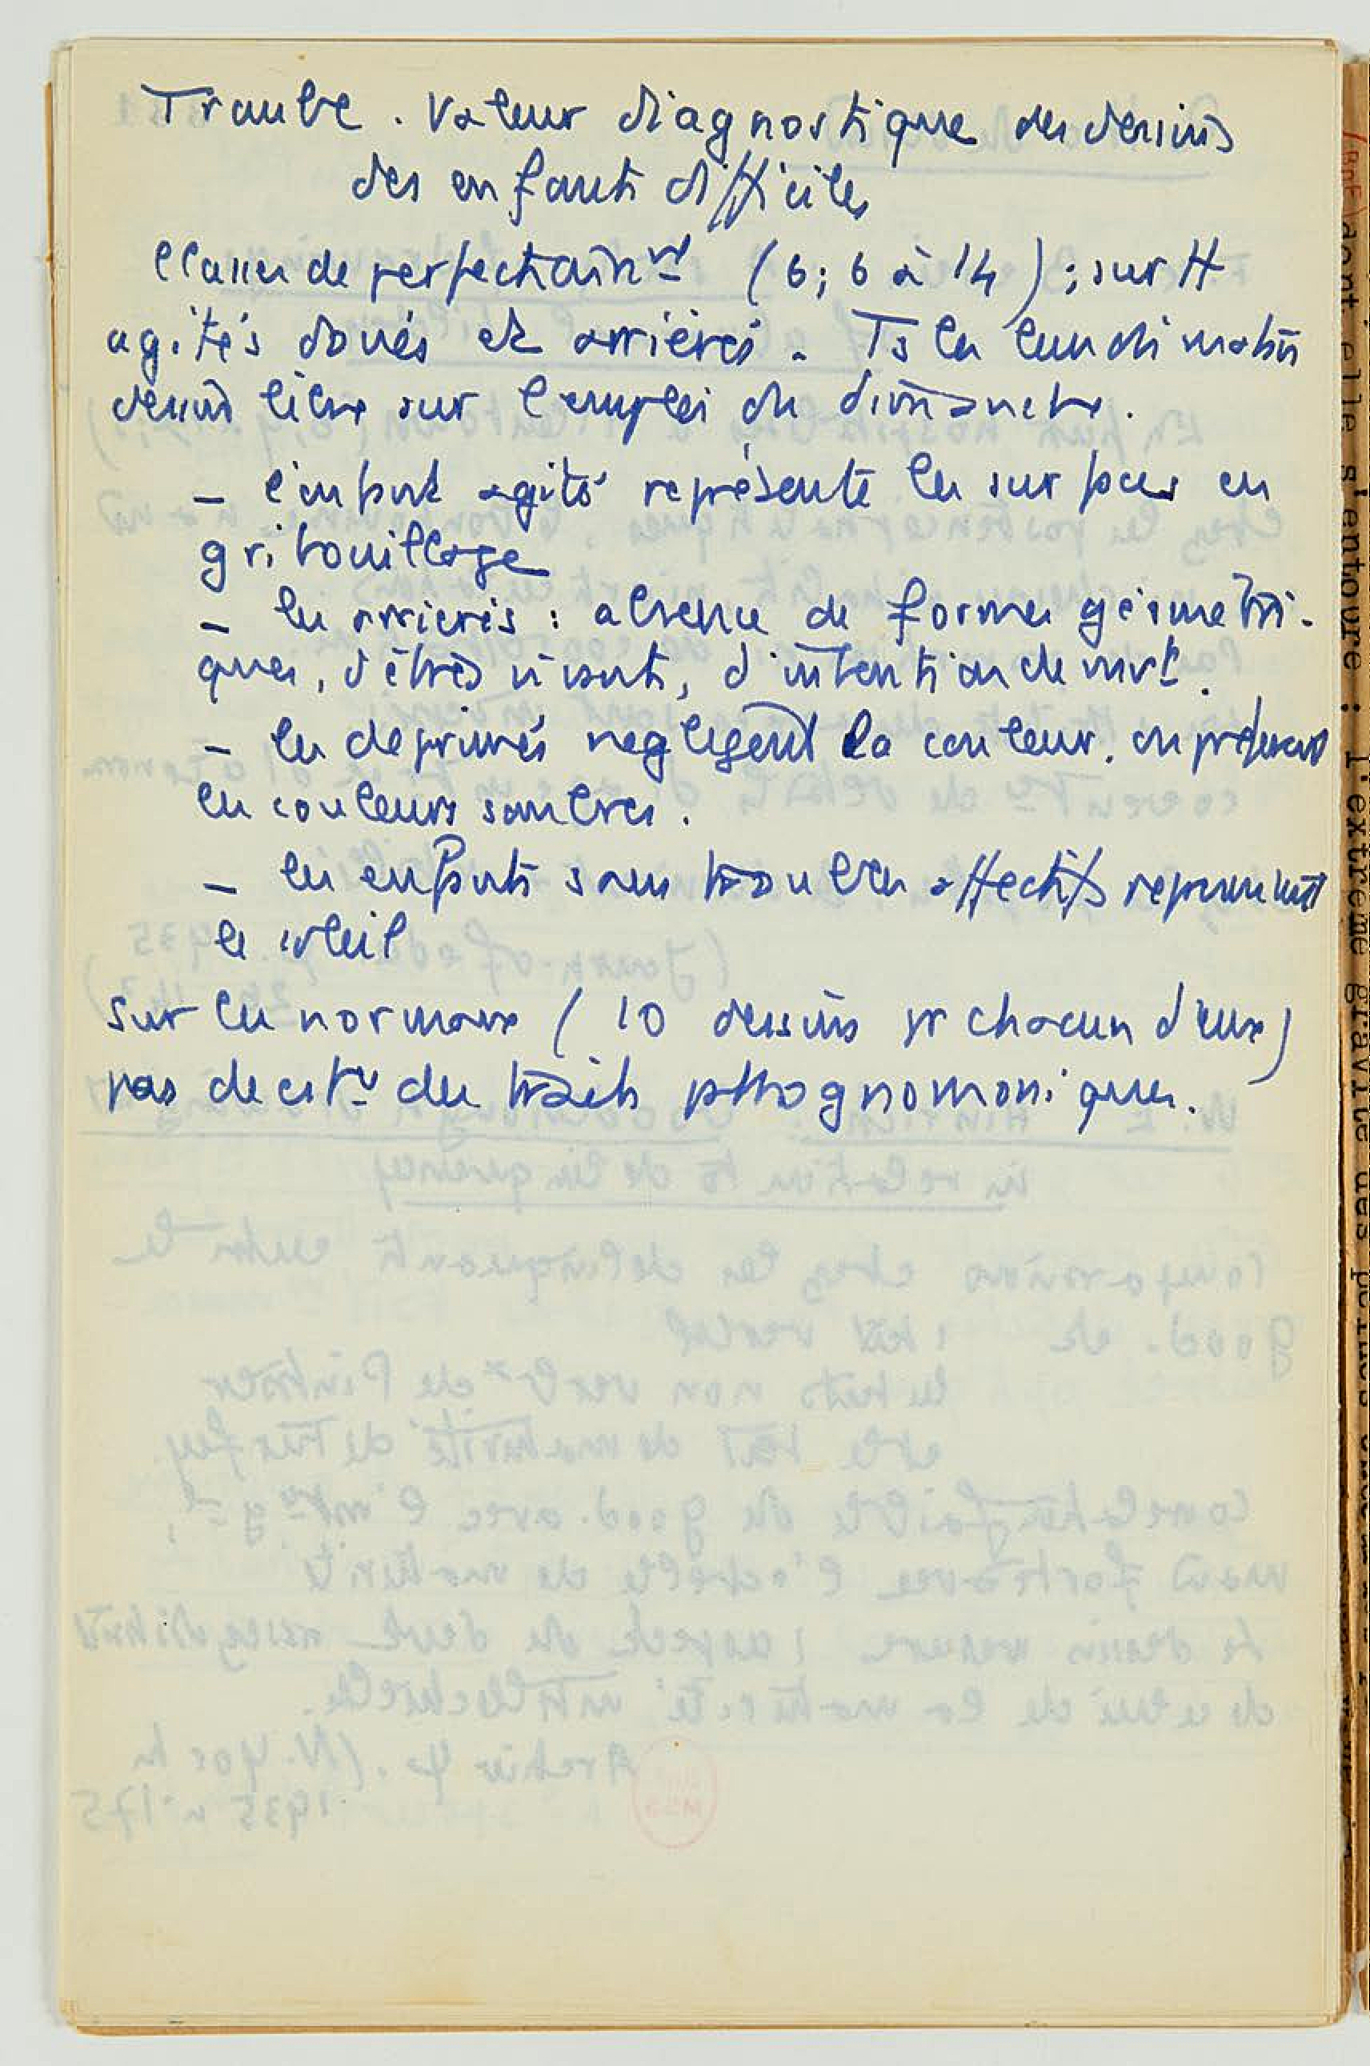 Traube. Valeur diagnostique des dessins
des enfants difficiles
Classes de perfectionnt (6; 6 à 14); sur H
agités doués et arriérés. Ts les lundi matin
dessin libre sur l'emploi du dimanche.
– l'enfant agité représente les surfaces en
gribouillage
– les arriérés : absence de formes géométri-
ques, d'êtres vivants, d'intention de mvt.
– les déprimés négligent la couleur, ou préfèrent
les couleurs sombres.
– les enfants sans troubles affectifs représentent
le soleil
sur les normaux (10 dessins pr chacun d'eux)
pas de cstn des traits pthognomoniques.